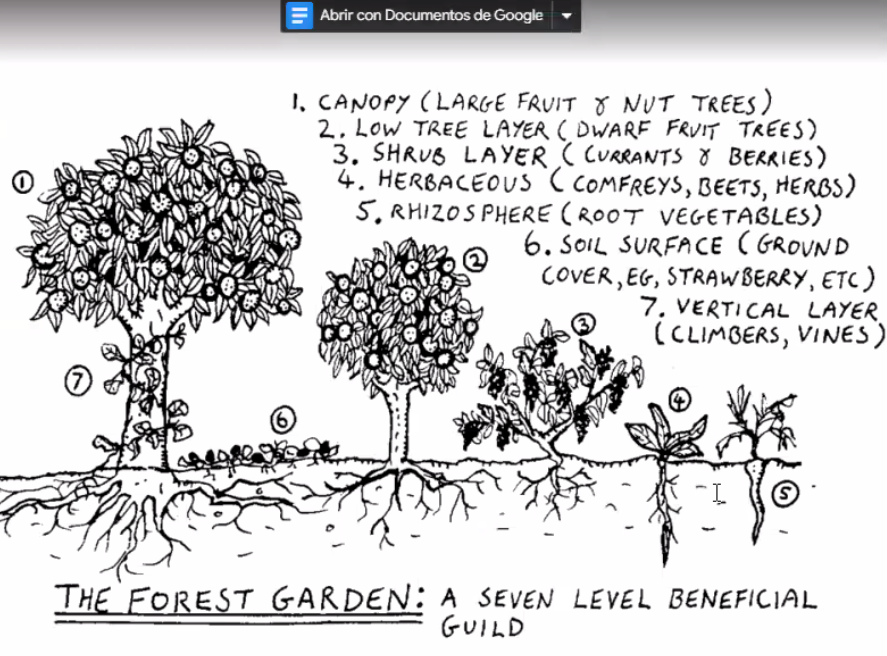 Abrir con Documentos de Google
1. CANOPY (LARGE FRUIT & NUT TREES)
2. LOW TREE LAYER (DWARF FRUIT TREES)
3. SHRUB LAYER (CURRANTS & BERRIES)
4. HERBACEOUS (COMFREYS, BEETS, HERBS)
5. RHIZOSPHERE (ROOT VEGETABLES)
6. SOIL SURFACE (GROUND
COVER, EG, STRAWBERRY, ETC)
7. VERTICAL LAYER
(CLIMBERS, VINES)
1
2
3
7
6
4
5
THE FOREST GARDEN: A SEVEN LEVEL BENEFICIAL
GUILD